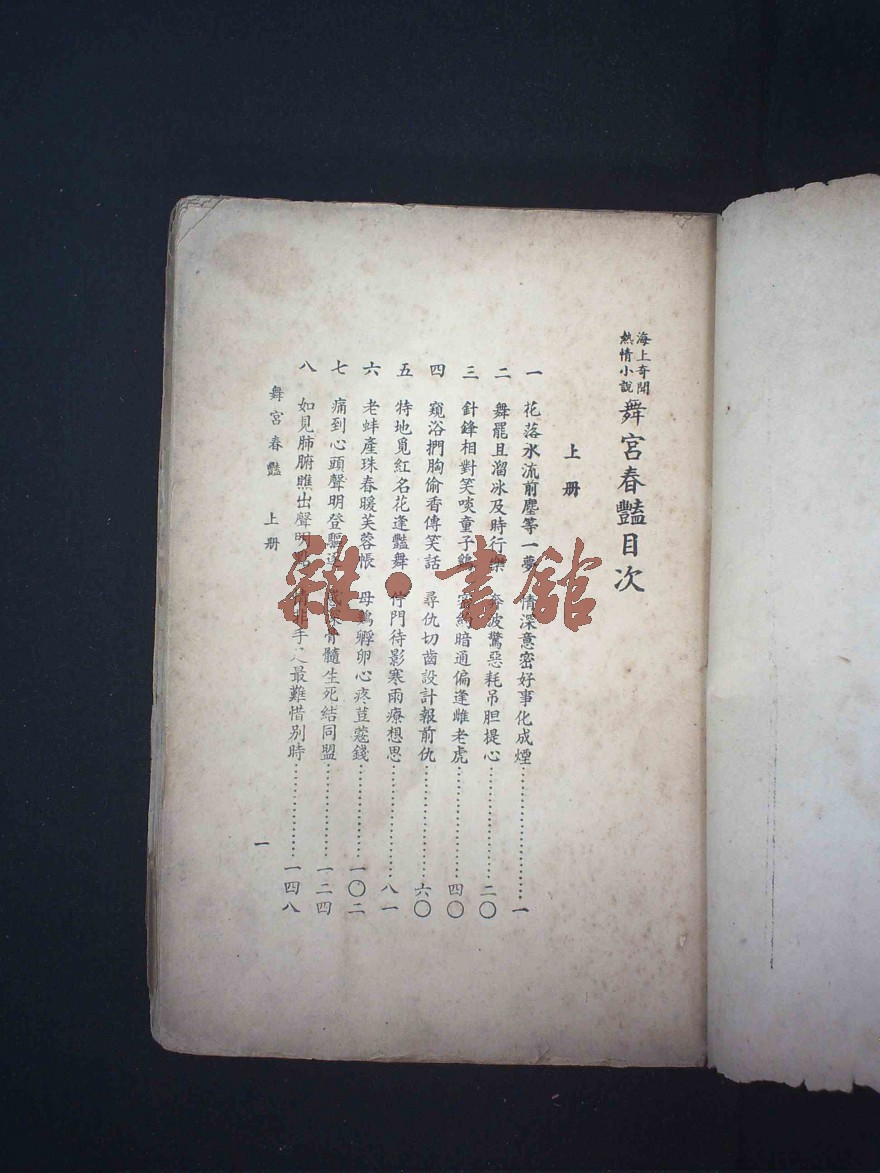 海上奇聞
熱情小說
舞宮春豔目次
上册
一 花落水流前塵等一夢 情深意密好事化成煙……一
二 舞罷且溜冰及時行樂 奔波驚惡耗吊胆提心……二〇
三 針鋒相對笑啖童子鷄 密約暗通偏逢雌老虎……四〇
四 窺浴捫胸偷香傳笑話 尋仇切齒設計報前仇……六〇
五 特地覓紅名花逢豔舞 倚門待影寒雨療想思……八一
六 老蚌產珠春暖芙蓉帳 母鷄孵卵心疼荳蔻錢……一〇二
七 痛到心頭聲明登驅逐 骨髓生死結同盟……一二四
八 如見肺腑瞧出聲明 情非手足最難惜別時……一四八
舞宮春豔 上册
一
雜·書館